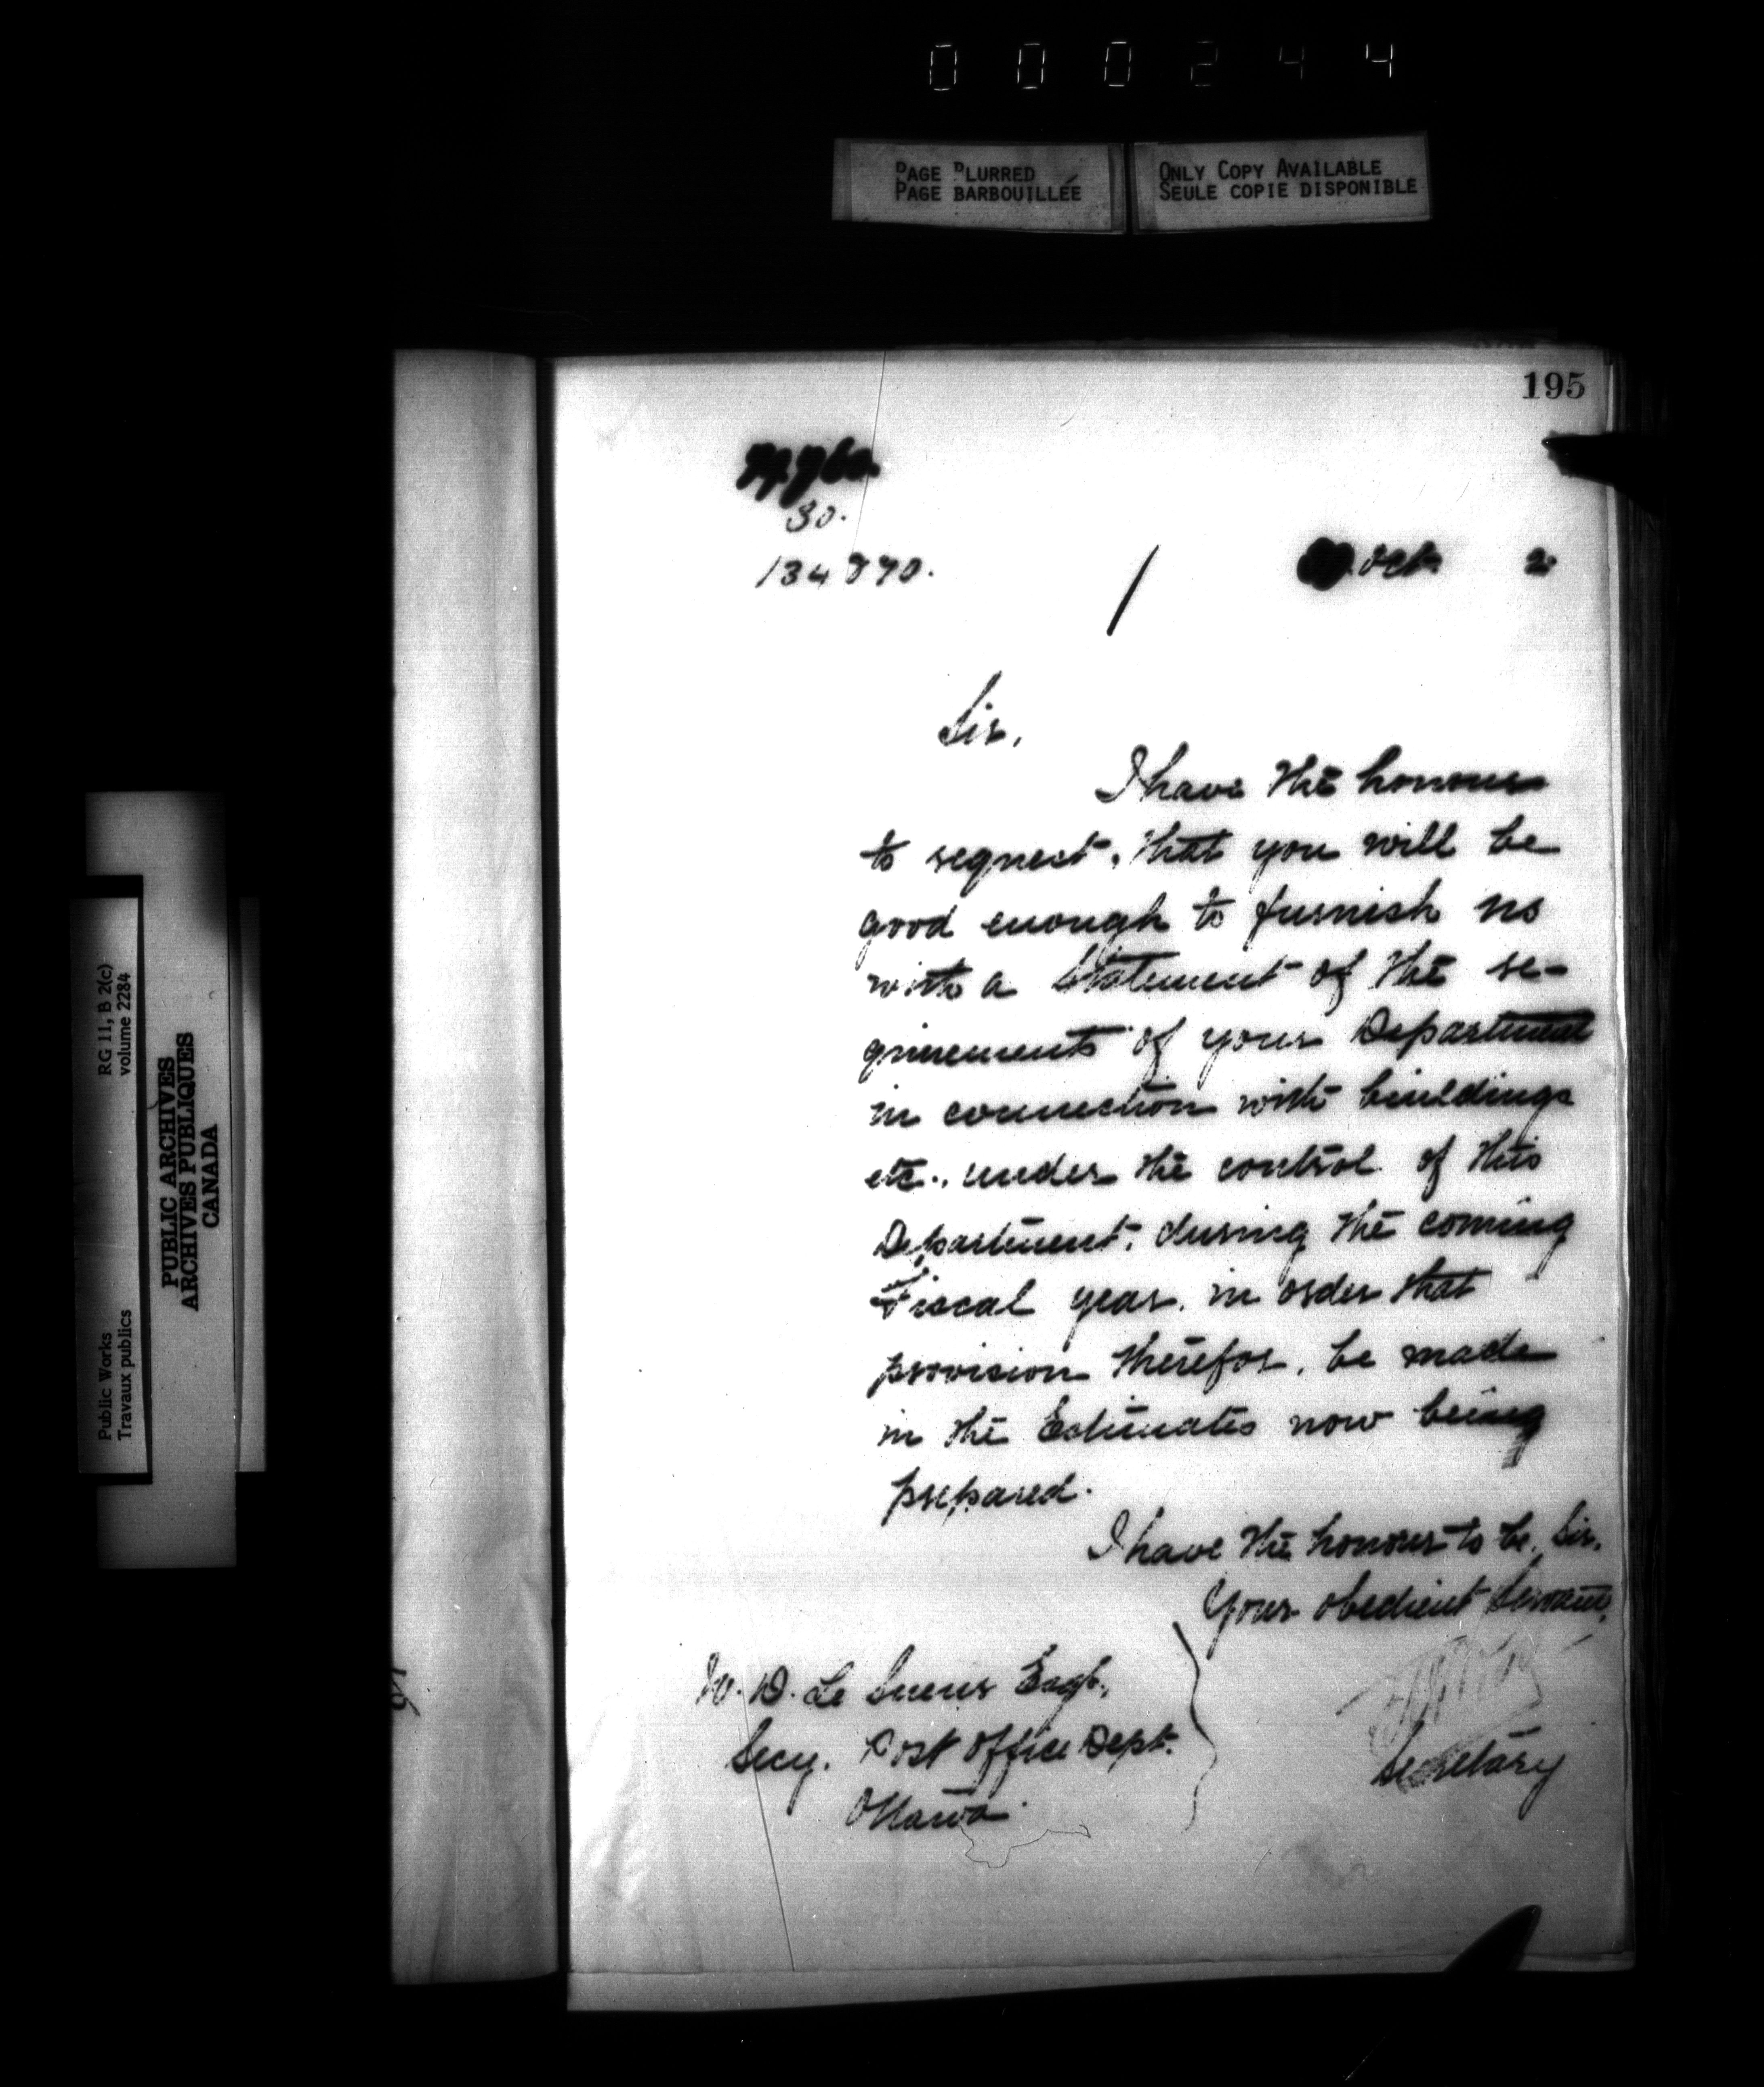 000244
PAGE BLURRED
PAGE BARBOUILLÉE
ONLY COPY AVAILABLE
SEULE COPIE DISPONIBLE
195
30.
134870.
Oct. 2
Sir,
I have the honour
to request, that you will be
good enough to furnish us
with a Statement of the re-
quirements of your Department
in connection with buildings
etc., under the control of this
Department, during the coming
Fiscal year, in order that
provision therefor, be made
in the Estimates now being
prepared.
I have the honour to be, Sir,
Your obedient Servant,
Secretary
W. D. Le Sueur Esqr.,
Secy. Post Office Dept.
Ottawa
RG 11, B 2(c)
volume 2284
PUBLIC ARCHIVES
ARCHIVES PUBLIQUES
CANADA
Public Works
Travaux publics